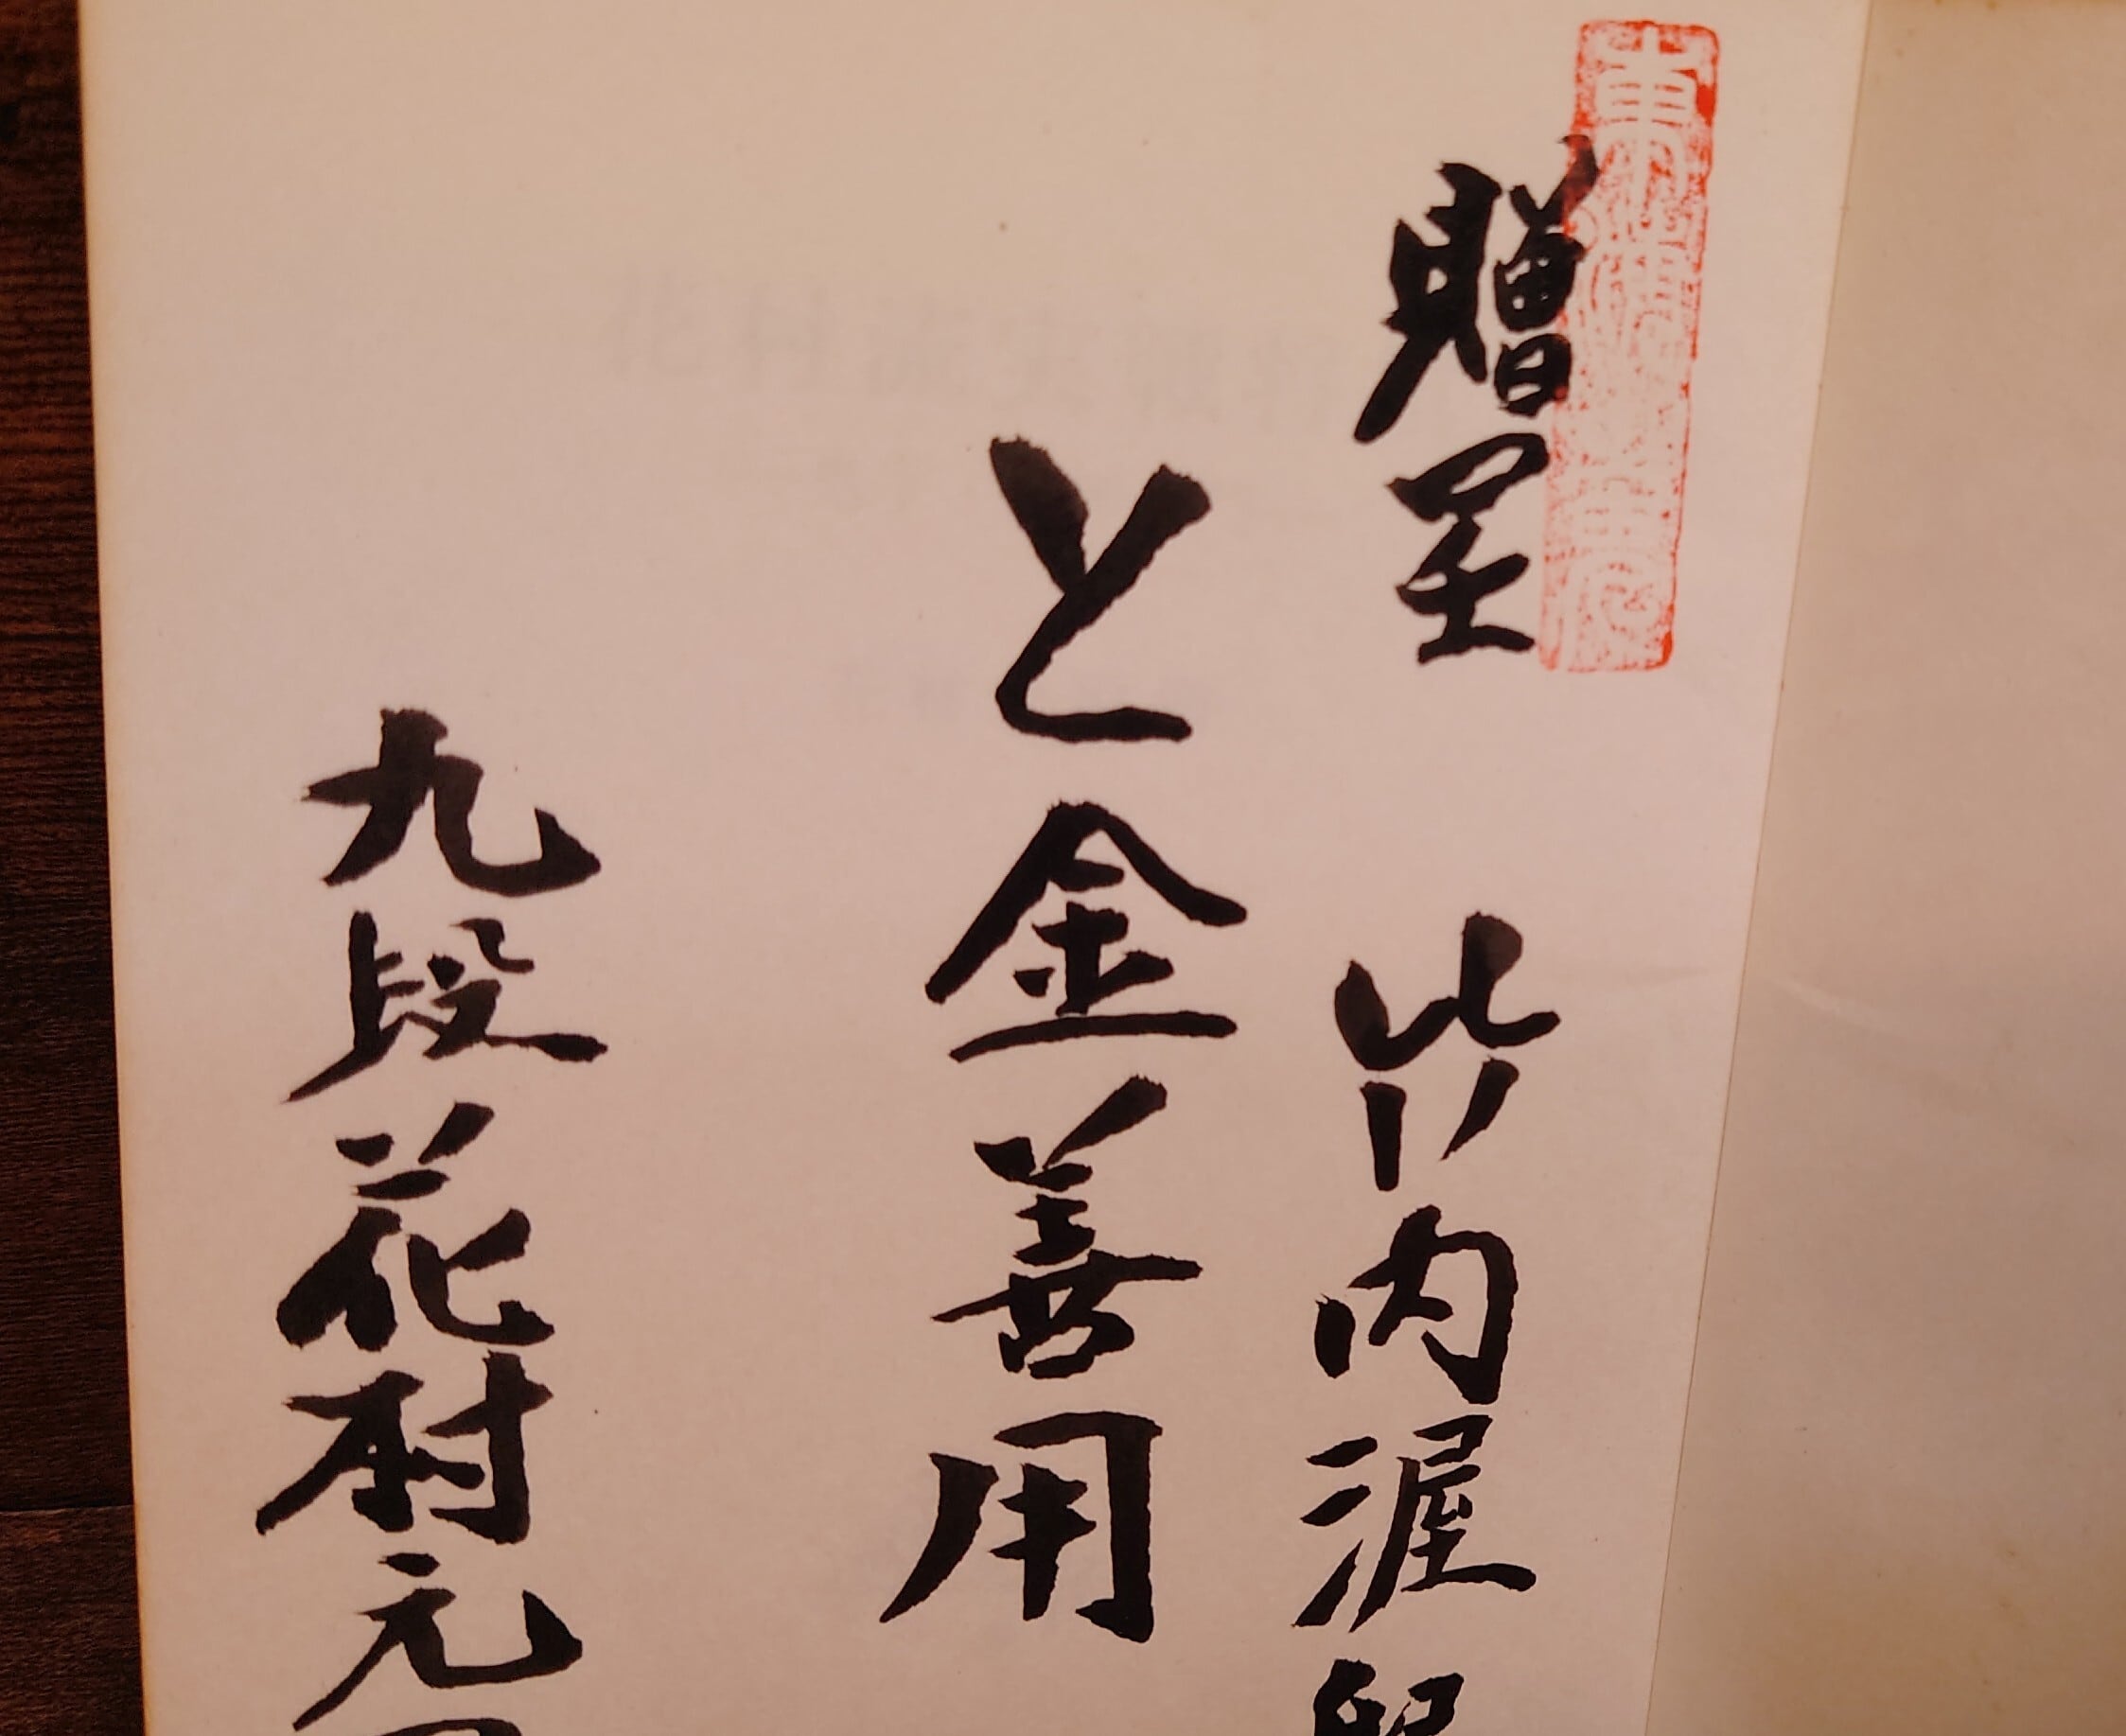 贈呈 竹内渥
と金善用
九段花村元